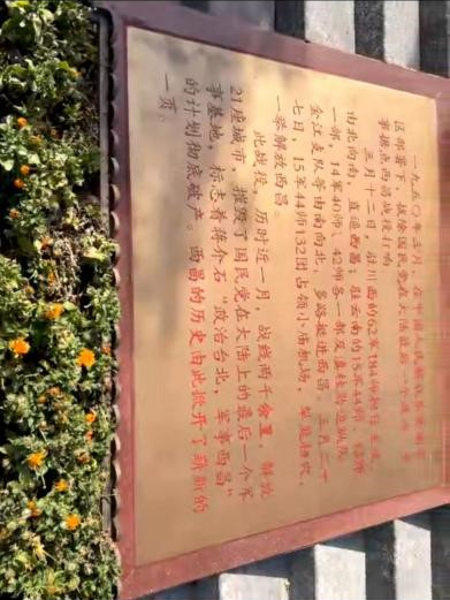 一九五〇年三月，在中国人民解放军西南军
区部署下，拔除国民党在大陆最后一个
事据点西昌战役打响。
三月十二日，驻川西的62军184师
由北向南，直逼西昌；驻云南的15军44师、
一部，14军40师、42师各一部及
金江支队等由南向北，多路挺进西昌。三月二十
七日，15军44师132团占领小庙机场，
一举解放西昌。
此战役，历时近一月，战线两千余里，解放
21座城市，摧毁了国民党在大陆上的最后一个军
事基地，标志着蒋介石“政治台北，军事西昌”
的计划彻底破产。西昌的历史由此掀开了崭新的
一页。